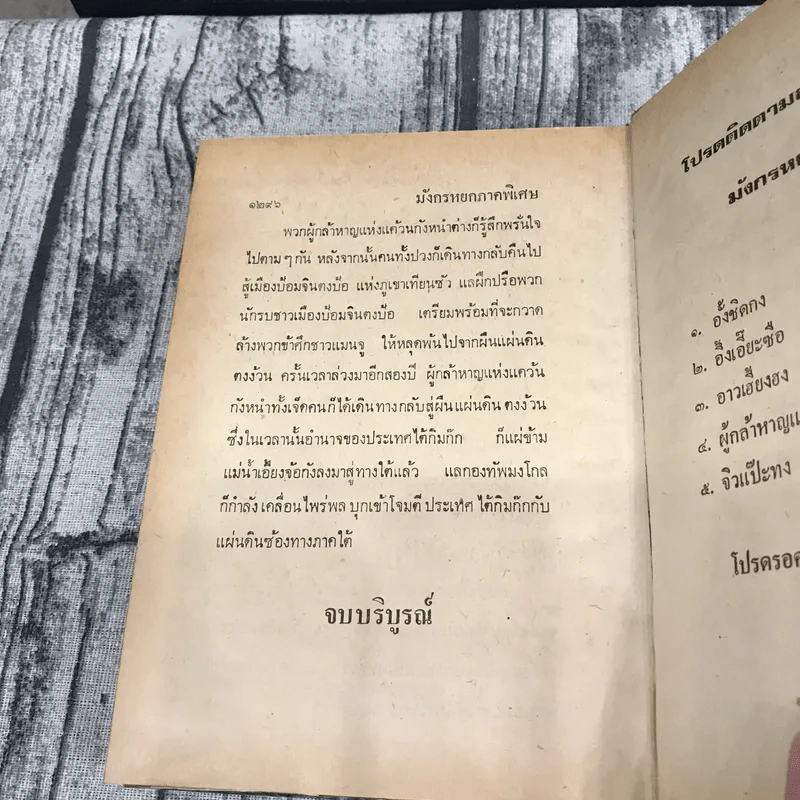 ๑๒๙๖ มังกรหยกภาคพิเศษ
พวกผู้กล้าหาญแห่งแคว้นกังหนำต่างก็รู้สึกพรั่นใจ
ไปตาม ๆ กัน หลังจากนั้นคนทั้งปวงก็เดินทางกลับคืนไป
สู้เมืองป้อมจินตงป้อ แห่งภูเขาเทียนซัว แลฝึกปรือพวก
นักรบชาวเมืองป้อมจินตงป้อ เตรียมพร้อมที่จะกวาด
ล้างพวกข้าศึกชาวแมนจู ให้หลุดพ้นไปจากผืนแผ่นดิน
ตงง้วน ครั้นเวลาล่วงมาอีกสองปี ผู้กล้าหาญแห่งแคว้น
กังหนำทั้งเจ็ดคนก็ได้เดินทางกลับสู่ผืนแผ่นดินตงง้วน
ซึ่งในเวลานั้นอำนาจของประเทศไต้กิมก๊ก ก็แผ่ข้าม
แม่น้ำเอี้ยงจ้อกังลงมาสู่ทางใต้แล้ว แลกองทัพมงโกล
ก็กำลังเคลื่อนไพร่พลบุกเข้าโจมตีประเทศไต้กิมก๊กกับ
แผ่นดินซ้องทางภาคใต้
จบบริบูรณ์
โปรดติดตาม
มังกรหยก
๑. อั้งชิดกง
๒. อึ้งเอี๊ยะซือ
๓. อาวเฮี้ยงฮง
๔. ผู้กล้าหาญ
๕. จิวแป๊ะทง